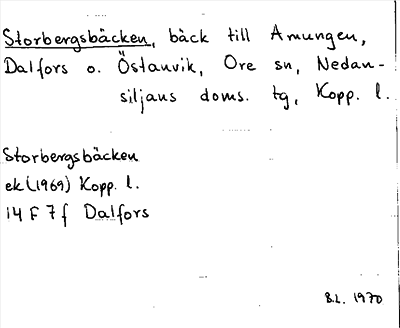 Storbergsbäcken, bäck till Amungen,
Dalfors o. Östanvik, Ore sn, Nedan-
siljans doms. tg, Kopp. l.
Storbergsbäcken
ek (1969) Kopp. l.
14 F 7 f Dalfors
B.L. 1970